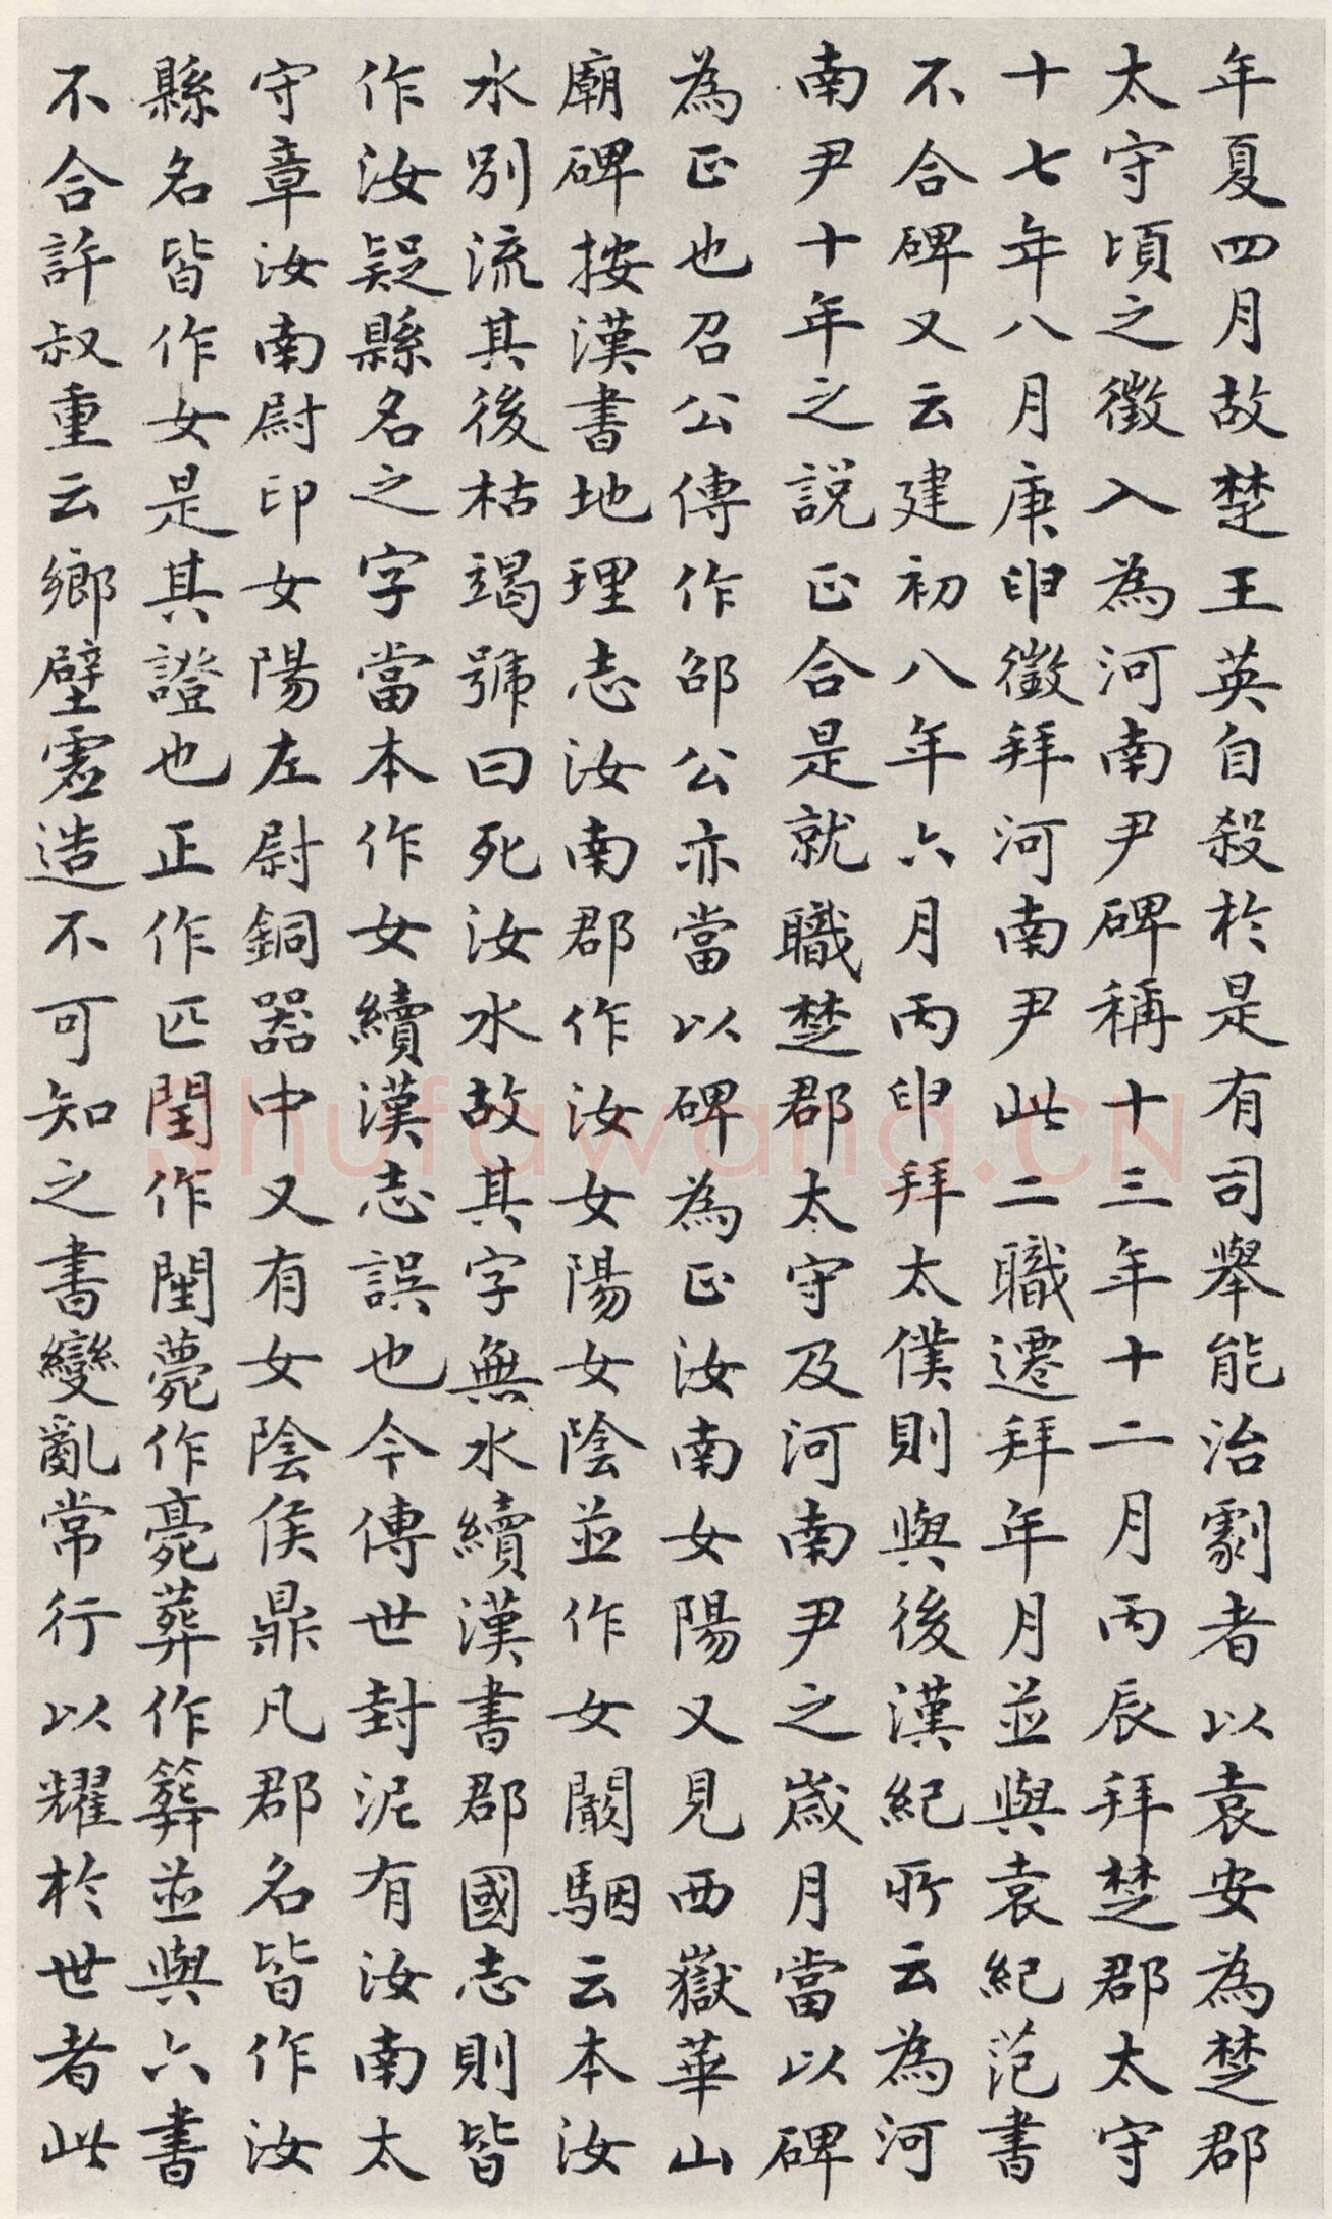 年夏四月故楚王英自殺於是有司舉能治劇者以袁安為楚郡
太守頃之徵入為河南尹碑稱十三年十二月丙辰拜楚郡太守
十七年八月庚申徵拜河南尹此二職遷拜年月並與袁紀范書
不合碑又云建初八年六月丙申拜太僕則與後漢紀所云為河
南尹十年之說正合是就職楚郡太守及河南尹之歲月當以碑
為正也召公傳作邵公亦當以碑為正汝南女陽又見西嶽華山
廟碑按漢書地理志汝南郡作汝女陽女陰並作女闞駰云本汝
水別流其後枯竭號曰死汝水故其字無水續漢書郡國志則皆
作汝疑縣名之字當本作女續漢志誤也今傳世封泥有汝南太
守章汝南尉印女陽左尉銅器中又有女陰侯鼎凡郡名皆作汝
縣名皆作女是其證也正作匹閏作閠薨作亮葬作簳並與六書
不合許叔重云鄉壁虛造不可知之書變亂常行以耀於世者此
shufawang.CN